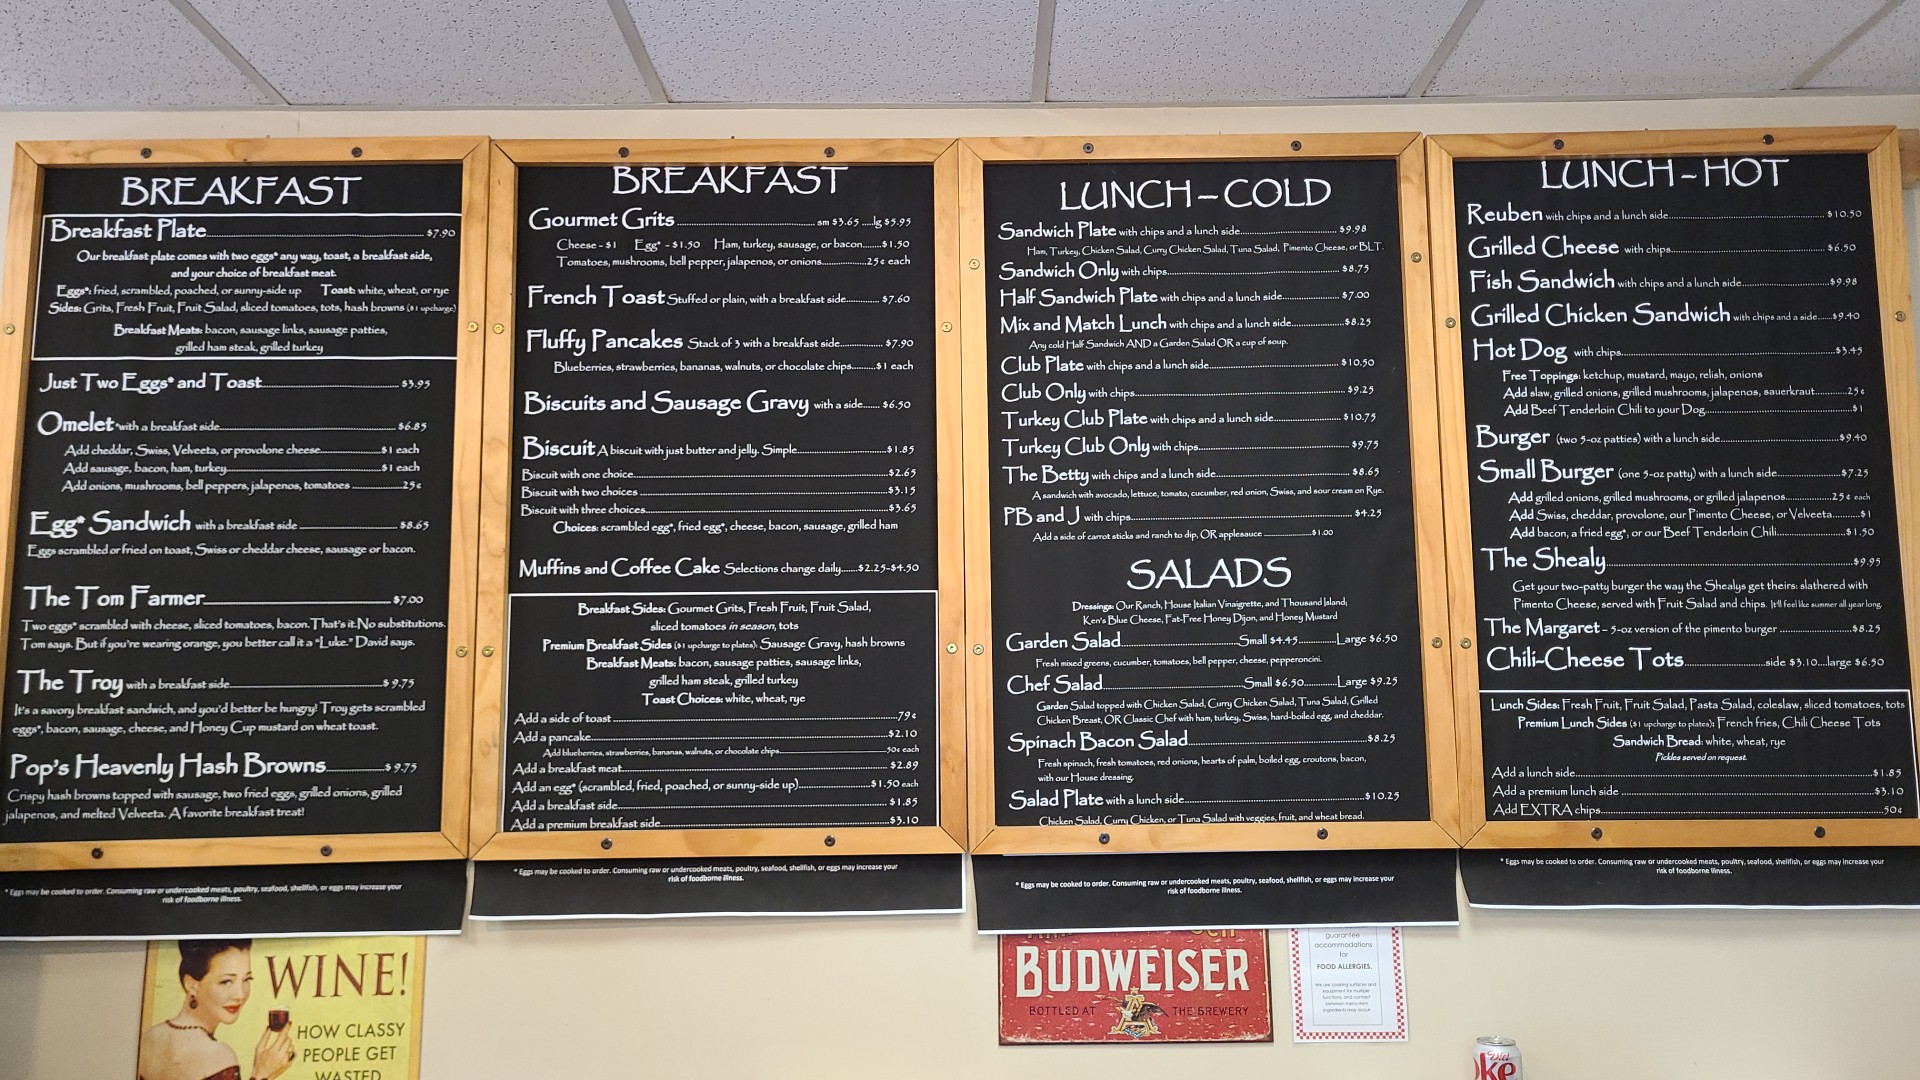 BREAKFAST
Breakfast Plate $7.90
Our breakfast plate comes with two eggs* any way, toast, a breakfast side,
and your choice of breakfast meat.
Eggs*: fried, scrambled, poached, or sunny-side up Toast: white, wheat, or rye
Sides: Grits, Fresh Fruit, Fruit Salad, sliced tomatoes, tots, hash browns ($1 upcharge)
Breakfast Meats: bacon, sausage links, sausage patties,
grilled ham steak, grilled turkey
Just Two Eggs* and Toast $3.95
Omelet* with a breakfast side $6.85
Add cheddar, Swiss, Velveeta, or provolone cheese $1 each
Add sausage, bacon, ham, turkey $1 each
Add onions, mushrooms, bell peppers, jalapenos, tomatoes 25¢
Egg* Sandwich with a breakfast side $8.65
Eggs scrambled or fried on toast, Swiss or cheddar cheese, sausage or bacon.
The Tom Farmer $7.00
Two eggs* scrambled with cheese, sliced tomatoes, bacon. That's it. No substitutions.
Tom says. But if you're wearing orange, you better call it a "Luke." David says.
The Troy with a breakfast side $9.75
It's a savory breakfast sandwich, and you'd better be hungry! Troy gets scrambled
eggs*, bacon, sausage, cheese, and Honey Cup mustard on wheat toast.
Pop's Heavenly Hash Browns $9.75
Crispy hash browns topped with sausage, two fried eggs, grilled onions, grilled
jalapenos, and melted Velveeta. A favorite breakfast treat!
* Eggs may be cooked to order. Consuming raw or undercooked meats, poultry, seafood, shellfish, or eggs may increase your
risk of foodborne illness.
BREAKFAST
Gourmet Grits sm $3.65 ....lg $5.95
Cheese - $1 Egg* - $1.50 Ham, turkey, sausage, or bacon $1.50
Tomatoes, mushrooms, bell pepper, jalapenos, or onions 25¢ each
French Toast Stuffed or plain, with a breakfast side $7.60
Fluffy Pancakes Stack of 3 with a breakfast side $7.90
Blueberries, strawberries, bananas, walnuts, or chocolate chips $1 each
Biscuits and Sausage Gravy with a side $6.50
Biscuit A biscuit with just butter and jelly. Simple $1.85
Biscuit with one choice $2.65
Biscuit with two choices $3.15
Biscuit with three choices $3.65
Choices: scrambled egg*, fried egg*, cheese, bacon, sausage, grilled ham
Muffins and Coffee Cake Selections change daily $2.25-$4.50
Breakfast Sides: Gourmet Grits, Fresh Fruit, Fruit Salad,
sliced tomatoes in season, tots
Premium Breakfast Sides ($1 upcharge to plates): Sausage Gravy, hash browns
Breakfast Meats: bacon, sausage patties, sausage links,
grilled ham steak, grilled turkey
Toast Choices: white, wheat, rye
Add a side of toast 79¢
Add a pancake $2.10
Add blueberries, strawberries, bananas, walnuts, or chocolate chips 50¢ each
Add a breakfast meat $2.89
Add an egg* (scrambled, fried, poached, or sunny-side up) $1.50 each
Add a breakfast side $1.85
Add a premium breakfast side $3.10
* Eggs may be cooked to order. Consuming raw or undercooked meats, poultry, seafood, shellfish, or eggs may increase your
risk of foodborne illness.
LUNCH - COLD
Sandwich Plate with chips and a lunch side $9.98
Ham, Turkey, Chicken Salad, Curry Chicken Salad, Tuna Salad, Pimento Cheese, or BLT.
Sandwich Only with chips $8.75
Half Sandwich Plate with chips and a lunch side $7.00
Mix and Match Lunch with chips and a lunch side $8.25
Any cold Half Sandwich AND a Garden Salad OR a cup of soup.
Club Plate with chips and a lunch side $10.50
Club Only with chips $9.25
Turkey Club Plate with chips and a lunch side $10.75
Turkey Club Only with chips $9.75
The Betty with chips and a lunch side $8.65
A sandwich with avocado, lettuce, tomato, cucumber, red onion, Swiss, and sour cream on Rye.
PB and J with chips $4.25
Add a side of carrot sticks and ranch to dip, OR applesauce $1.00
SALADS
Dressings: Our Ranch, House Italian Vinaigrette, and Thousand Island;
Ken's Blue Cheese, Fat-Free Honey Dijon, and Honey Mustard
Garden Salad Small $4.45 Large $6.50
Fresh mixed greens, cucumber, tomatoes, bell pepper, cheese, pepperoncini.
Chef Salad Small $6.50 Large $9.25
Garden Salad topped with Chicken Salad, Curry Chicken Salad, Tuna Salad, Grilled
Chicken Breast, OR Classic Chef with ham, turkey, Swiss, hard-boiled egg, and cheddar.
Spinach Bacon Salad $8.25
Fresh spinach, fresh tomatoes, red onions, hearts of palm, boiled egg, croutons, bacon,
with our House dressing.
Salad Plate with a lunch side $10.25
Chicken Salad, Curry Chicken, or Tuna Salad with veggies, fruit, and wheat bread.
* Eggs may be cooked to order. Consuming raw or undercooked meats, poultry, seafood, shellfish, or eggs may increase your
risk of foodborne illness.
LUNCH - HOT
Reuben with chips and a lunch side $10.50
Grilled Cheese with chips $6.50
Fish Sandwich with chips and a lunch side $9.98
Grilled Chicken Sandwich with chips and a side $9.40
Hot Dog with chips $3.45
Free Toppings: ketchup, mustard, mayo, relish, onions
Add slaw, grilled onions, grilled mushrooms, jalapenos, sauerkraut 25¢
Add Beef Tenderloin Chili to your Dog $1
Burger (two 5-oz patties) with a lunch side $9.40
Small Burger (one 5-oz patty) with a lunch side $7.25
Add grilled onions, grilled mushrooms, or grilled jalapenos 25¢ each
Add Swiss, cheddar, provolone, our Pimento Cheese, or Velveeta $1
Add bacon, a fried egg*, or our Beef Tenderloin Chili $1.50
The Shealy $9.95
Get your two-patty burger the way the Shealys get theirs: slathered with
Pimento Cheese, served with Fruit Salad and chips. It'll feel like summer all year long.
The Margaret – 5-oz version of the pimento burger $8.25
Chili-Cheese Tots side $3.10....large $6.50
Lunch Sides: Fresh Fruit, Fruit Salad, Pasta Salad, coleslaw, sliced tomatoes, tots
Premium Lunch Sides ($1 upcharge to plates): French fries, Chili Cheese Tots
Sandwich Bread: white, wheat, rye
Pickles served on request.
Add a lunch side $1.85
Add a premium lunch side $3.10
Add EXTRA chips 50¢
* Eggs may be cooked to order. Consuming raw or undercooked meats, poultry, seafood, shellfish, or eggs may increase your
risk of foodborne illness.
WINE!
HOW CLASSY
PEOPLE GET
WASTED
BUDWEISER
BOTTLED AT THE BREWERY
guarantee
accommodations
for
FOOD ALLERGIES.
We are cooking surfaces and
equipment for multiple
functions, and contact
between menu item
ingredients may occur.
Diet
ke